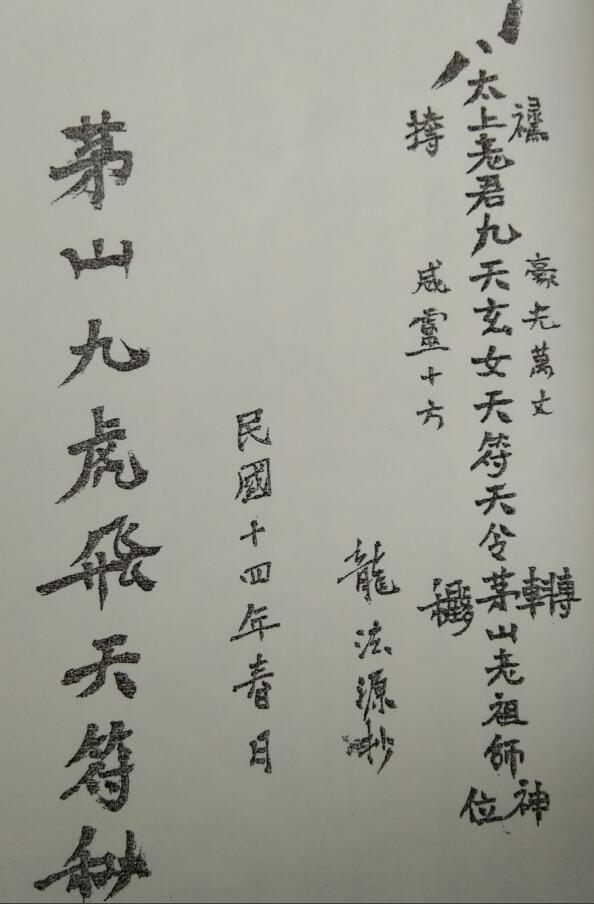 太上老君九天玄女天符天令茅山老祖師神位
豪光萬丈
威靈十方
龍法源抄
民國十四年春日
茅山九虎飛天符秘